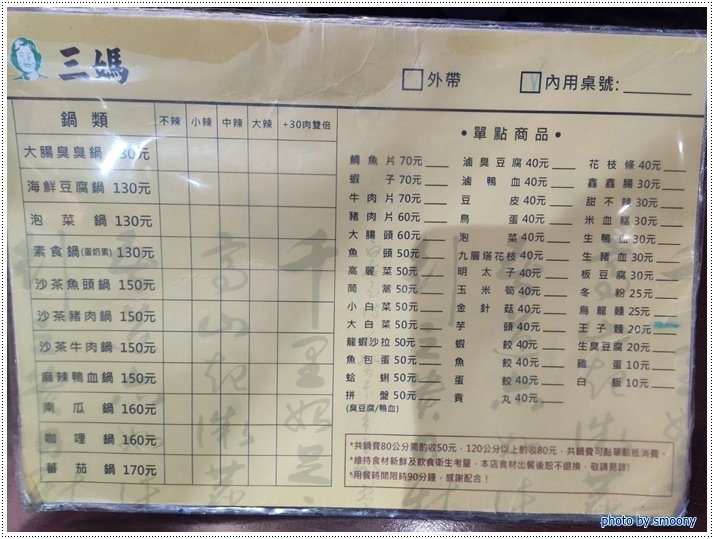 三媽
外帶
內用桌號:
鍋類 不辣 小辣 中辣 大辣 +30肉雙倍
大腸臭臭鍋 130元
海鮮豆腐鍋 130元
泡菜鍋 130元
素食鍋(蛋奶素) 130元
沙茶魚頭鍋 150元
沙茶豬肉鍋 150元
沙茶牛肉鍋 150元
麻辣鴨血鍋 150元
南瓜鍋 160元
咖哩鍋 160元
蕃茄鍋 170元
•單點商品•
鯛魚片 70元
蝦子 70元
牛肉片 70元
豬肉片 60元
大腸頭 60元
魚頭 50元
高麗菜 50元
茼蒿 50元
小白菜 50元
大白菜 50元
龍蝦沙拉 50元
魚包蛋 50元
蛤蜊 50元
拼盤 50元
(臭豆腐/鴨血)
滷臭豆腐 40元
滷鴨血 40元
豆皮 40元
鳥蛋 40元
泡菜 40元
九層塔花枝 40元
明太子 40元
玉米筍 40元
金針菇 40元
芋頭 40元
蝦餃 40元
魚餃 40元
蛋餃 40元
貢丸 40元
花枝條 40元
鑫鑫腸 30元
甜不辣 30元
米血糕 30元
生鴨血 30元
生豬血 30元
板豆腐 30元
冬粉 25元
烏龍麵 25元
王子麵 20元
生臭豆腐 20元
雞蛋 10元
白飯 10元
*共鍋費80公分需酌收50元，120公分以上酌收80元，共鍋費可點單點抵消費。
*維持食材新鮮及飲食衛生考量，本店食材出餐後恕不退換，敬請見諒!
*用餐時間限時90分鐘，感謝配合！
photo by smoony